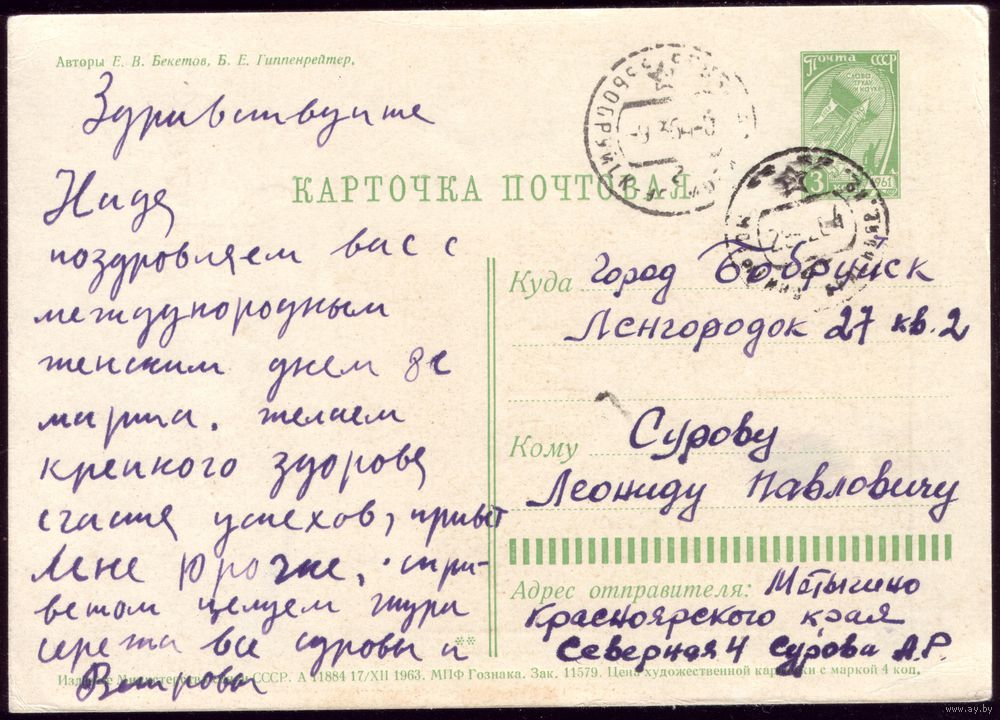 Авторы Е. В. Бекетов, Б. Е. Гиппенрейтер.
Здравствуйте
Надя
поздровляем вас с
международным
женским днем 8е
марта. желаем
крепкого здоровя
счастя успехов, привет
Лене Юрочке, с при-
ветом целуем шура
серета все суровы и
КАРТОЧКА ПОЧТОВАЯ
Почта СССР
СЛОВА
ТРУДУ
И НАУКЕ
3 коп 1961
Куда город Бобруйск
Ленгородок 27 кв. 2
Кому Сурову
Леониду Павловичу
Адрес отправителя: Мотыгино
Красноярского края
Северная 4 Сурова А.Р.
Издание Министерства связи СССР. А 11884 17/XII 1963. МПФ Гознака. Зак. 11579. Цена художественной карточки с маркой 4 коп.
www.ay.by